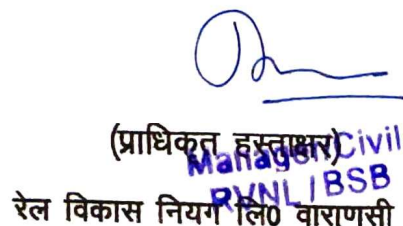 (प्राधिकृत हस्ताक्षर)
Manager Civil
RVNL/BSB
रेल विकास नियग लि0 वाराणसी